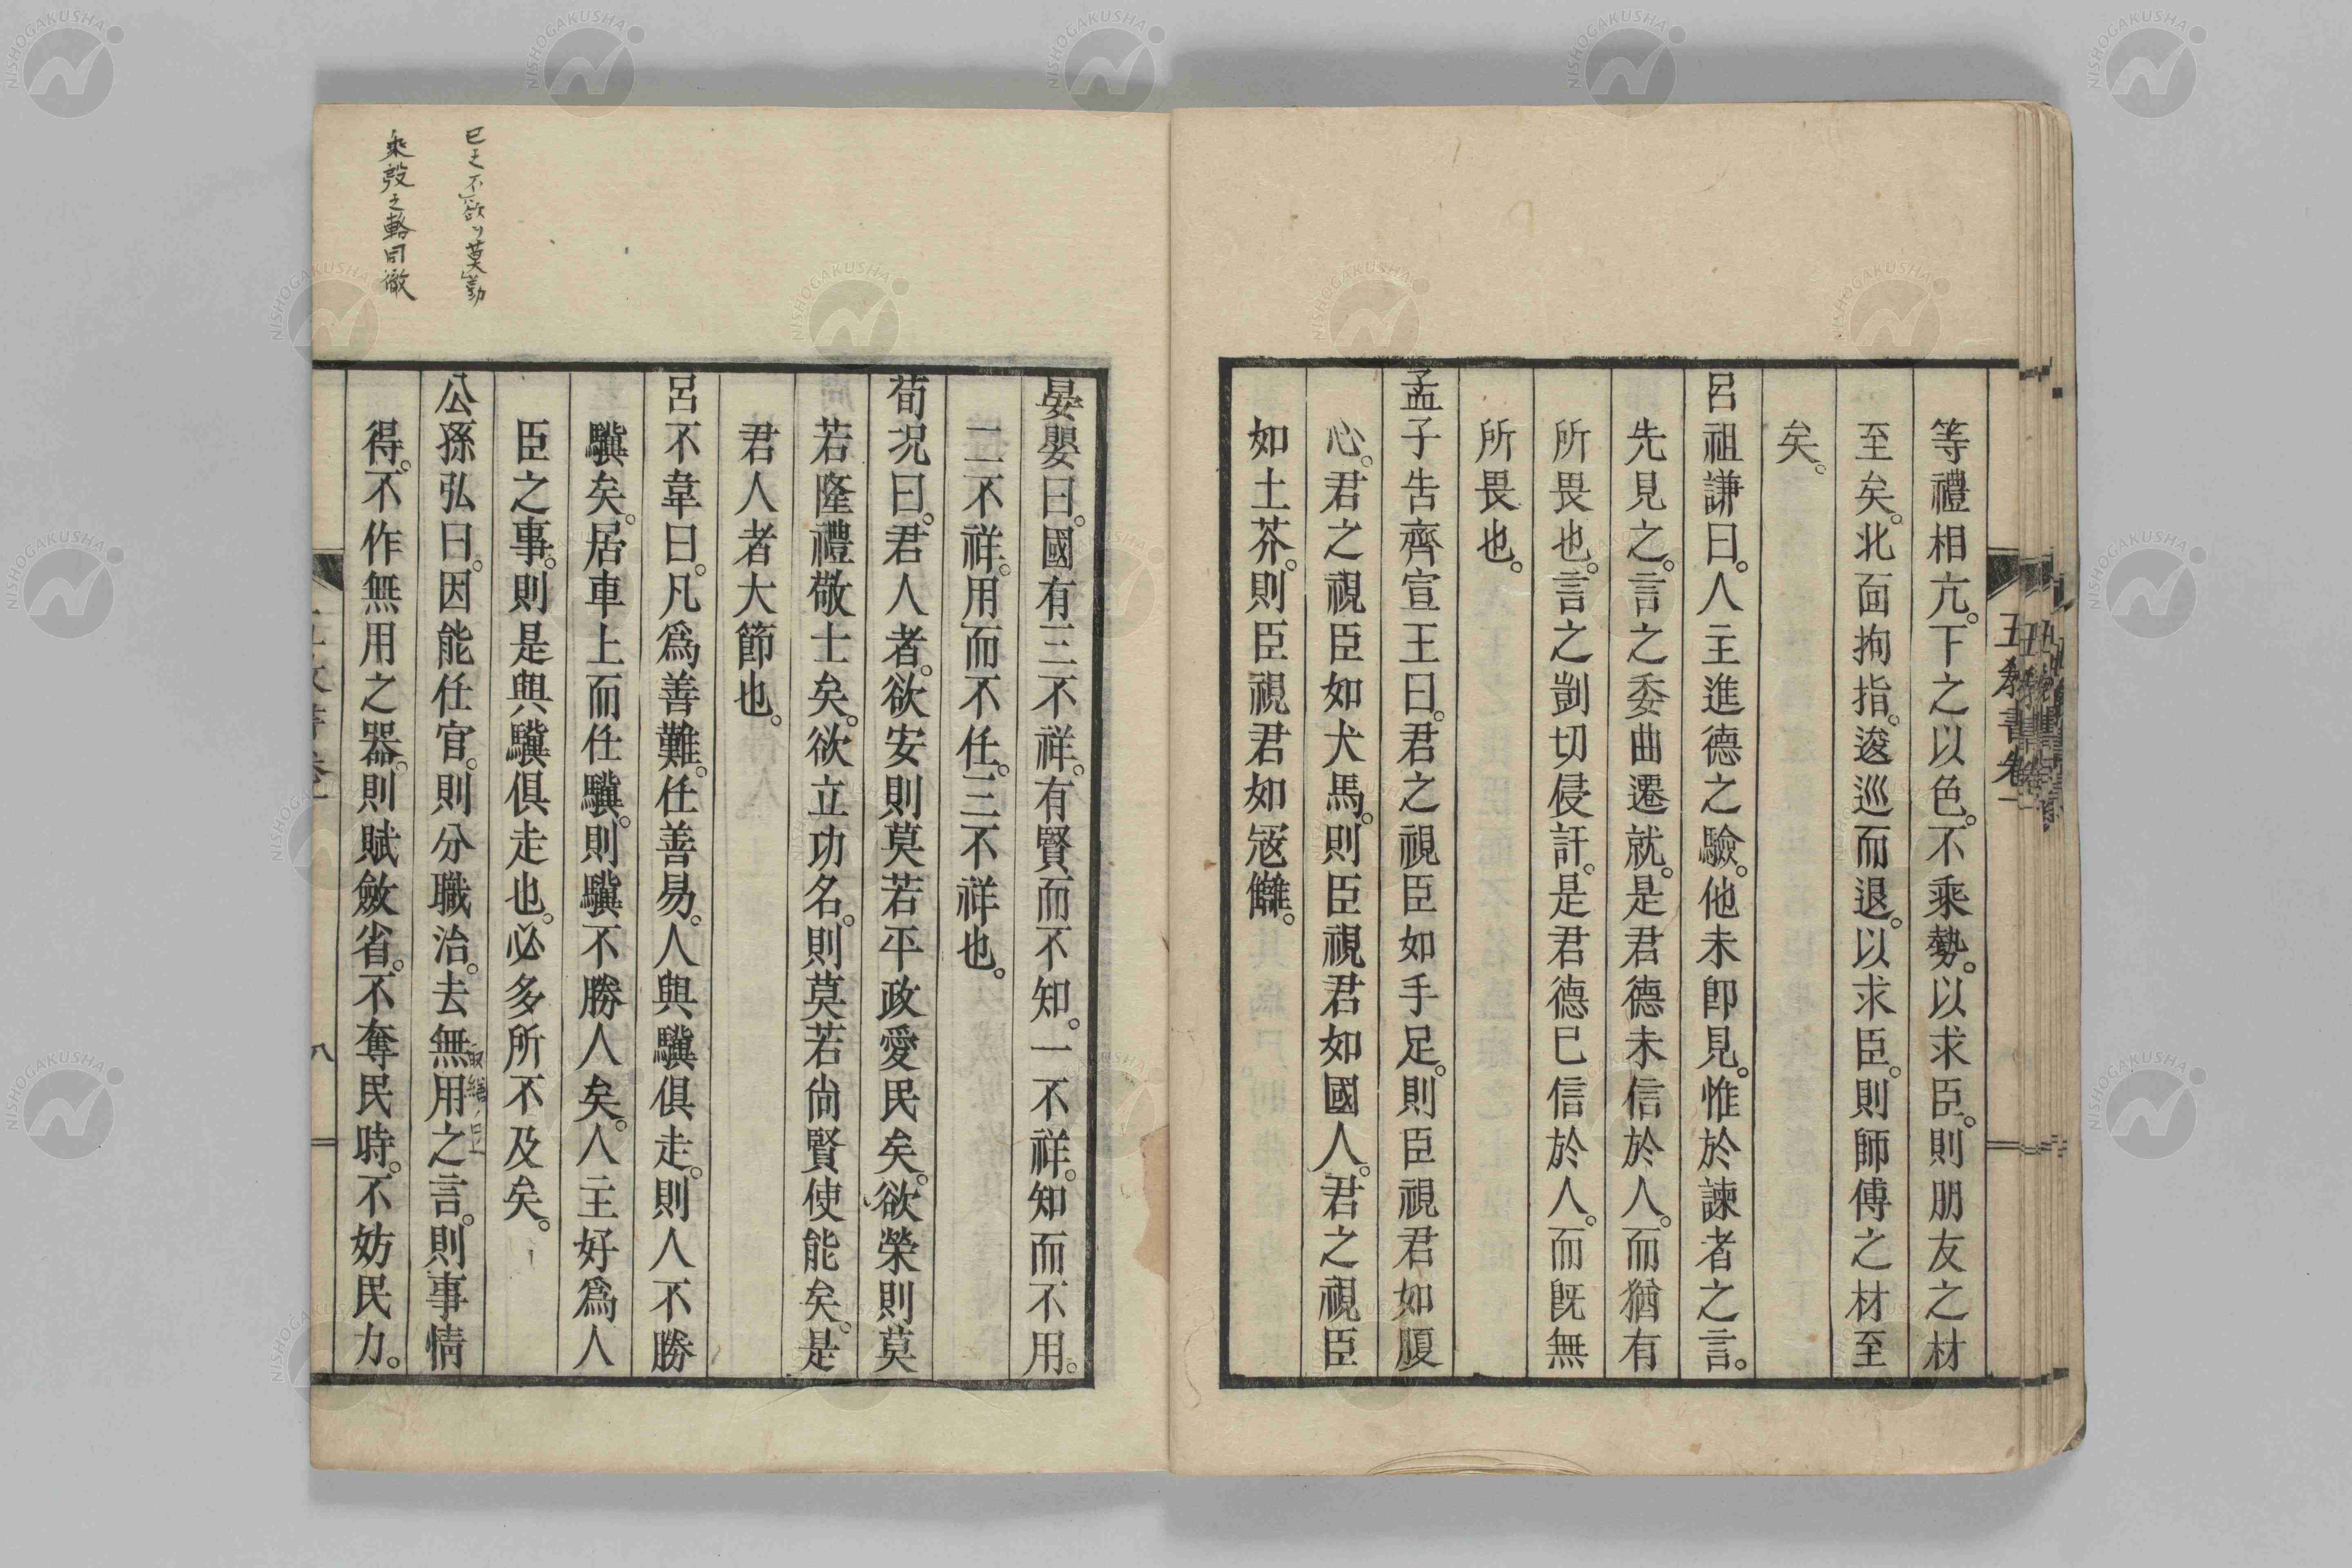 等禮相亢。下之以色。不乘勢。以求臣。則朋友之材
至矣。北面拘指。逡巡而退。以求臣。則師傅之材至
矣。
呂祖謙曰。人主進德之驗。他未卽見。惟於諫者之言。
先見之。言之委曲遷就。是君德未信於人。而猶有
所畏也。言之剴切侵訐。是君德已信於人。而旣無
所畏也。
孟子告齊宣王曰。君之視臣如手足。則臣視君如腹
心。君之視臣如犬馬。則臣視君如國人。君之視臣
如土芥。則臣視君如寇讎。
晏嬰曰。國有三不祥。有賢而不知。一不祥。知而不用。
二不祥。用而不任。三不祥也。
荀况曰。君人者。欲安則莫若平政愛民矣。欲榮則莫
若隆禮敬士矣。欲立功名。則莫若尙賢使能矣。是
君人者大節也。
呂不韋曰。凡爲善難。任善易。人與驥俱走。則人不勝
驥矣。居車上而任驥。則驥不勝人矣。人主好爲人
臣之事。則是與驥俱走也。必多所不及矣。
公孫弘曰。因能任官。則分職治。去無用之言。則事情
得。不作無用之器。則賦斂省。不奪民時。不妨民力。
八
NISHOGAKUSHA